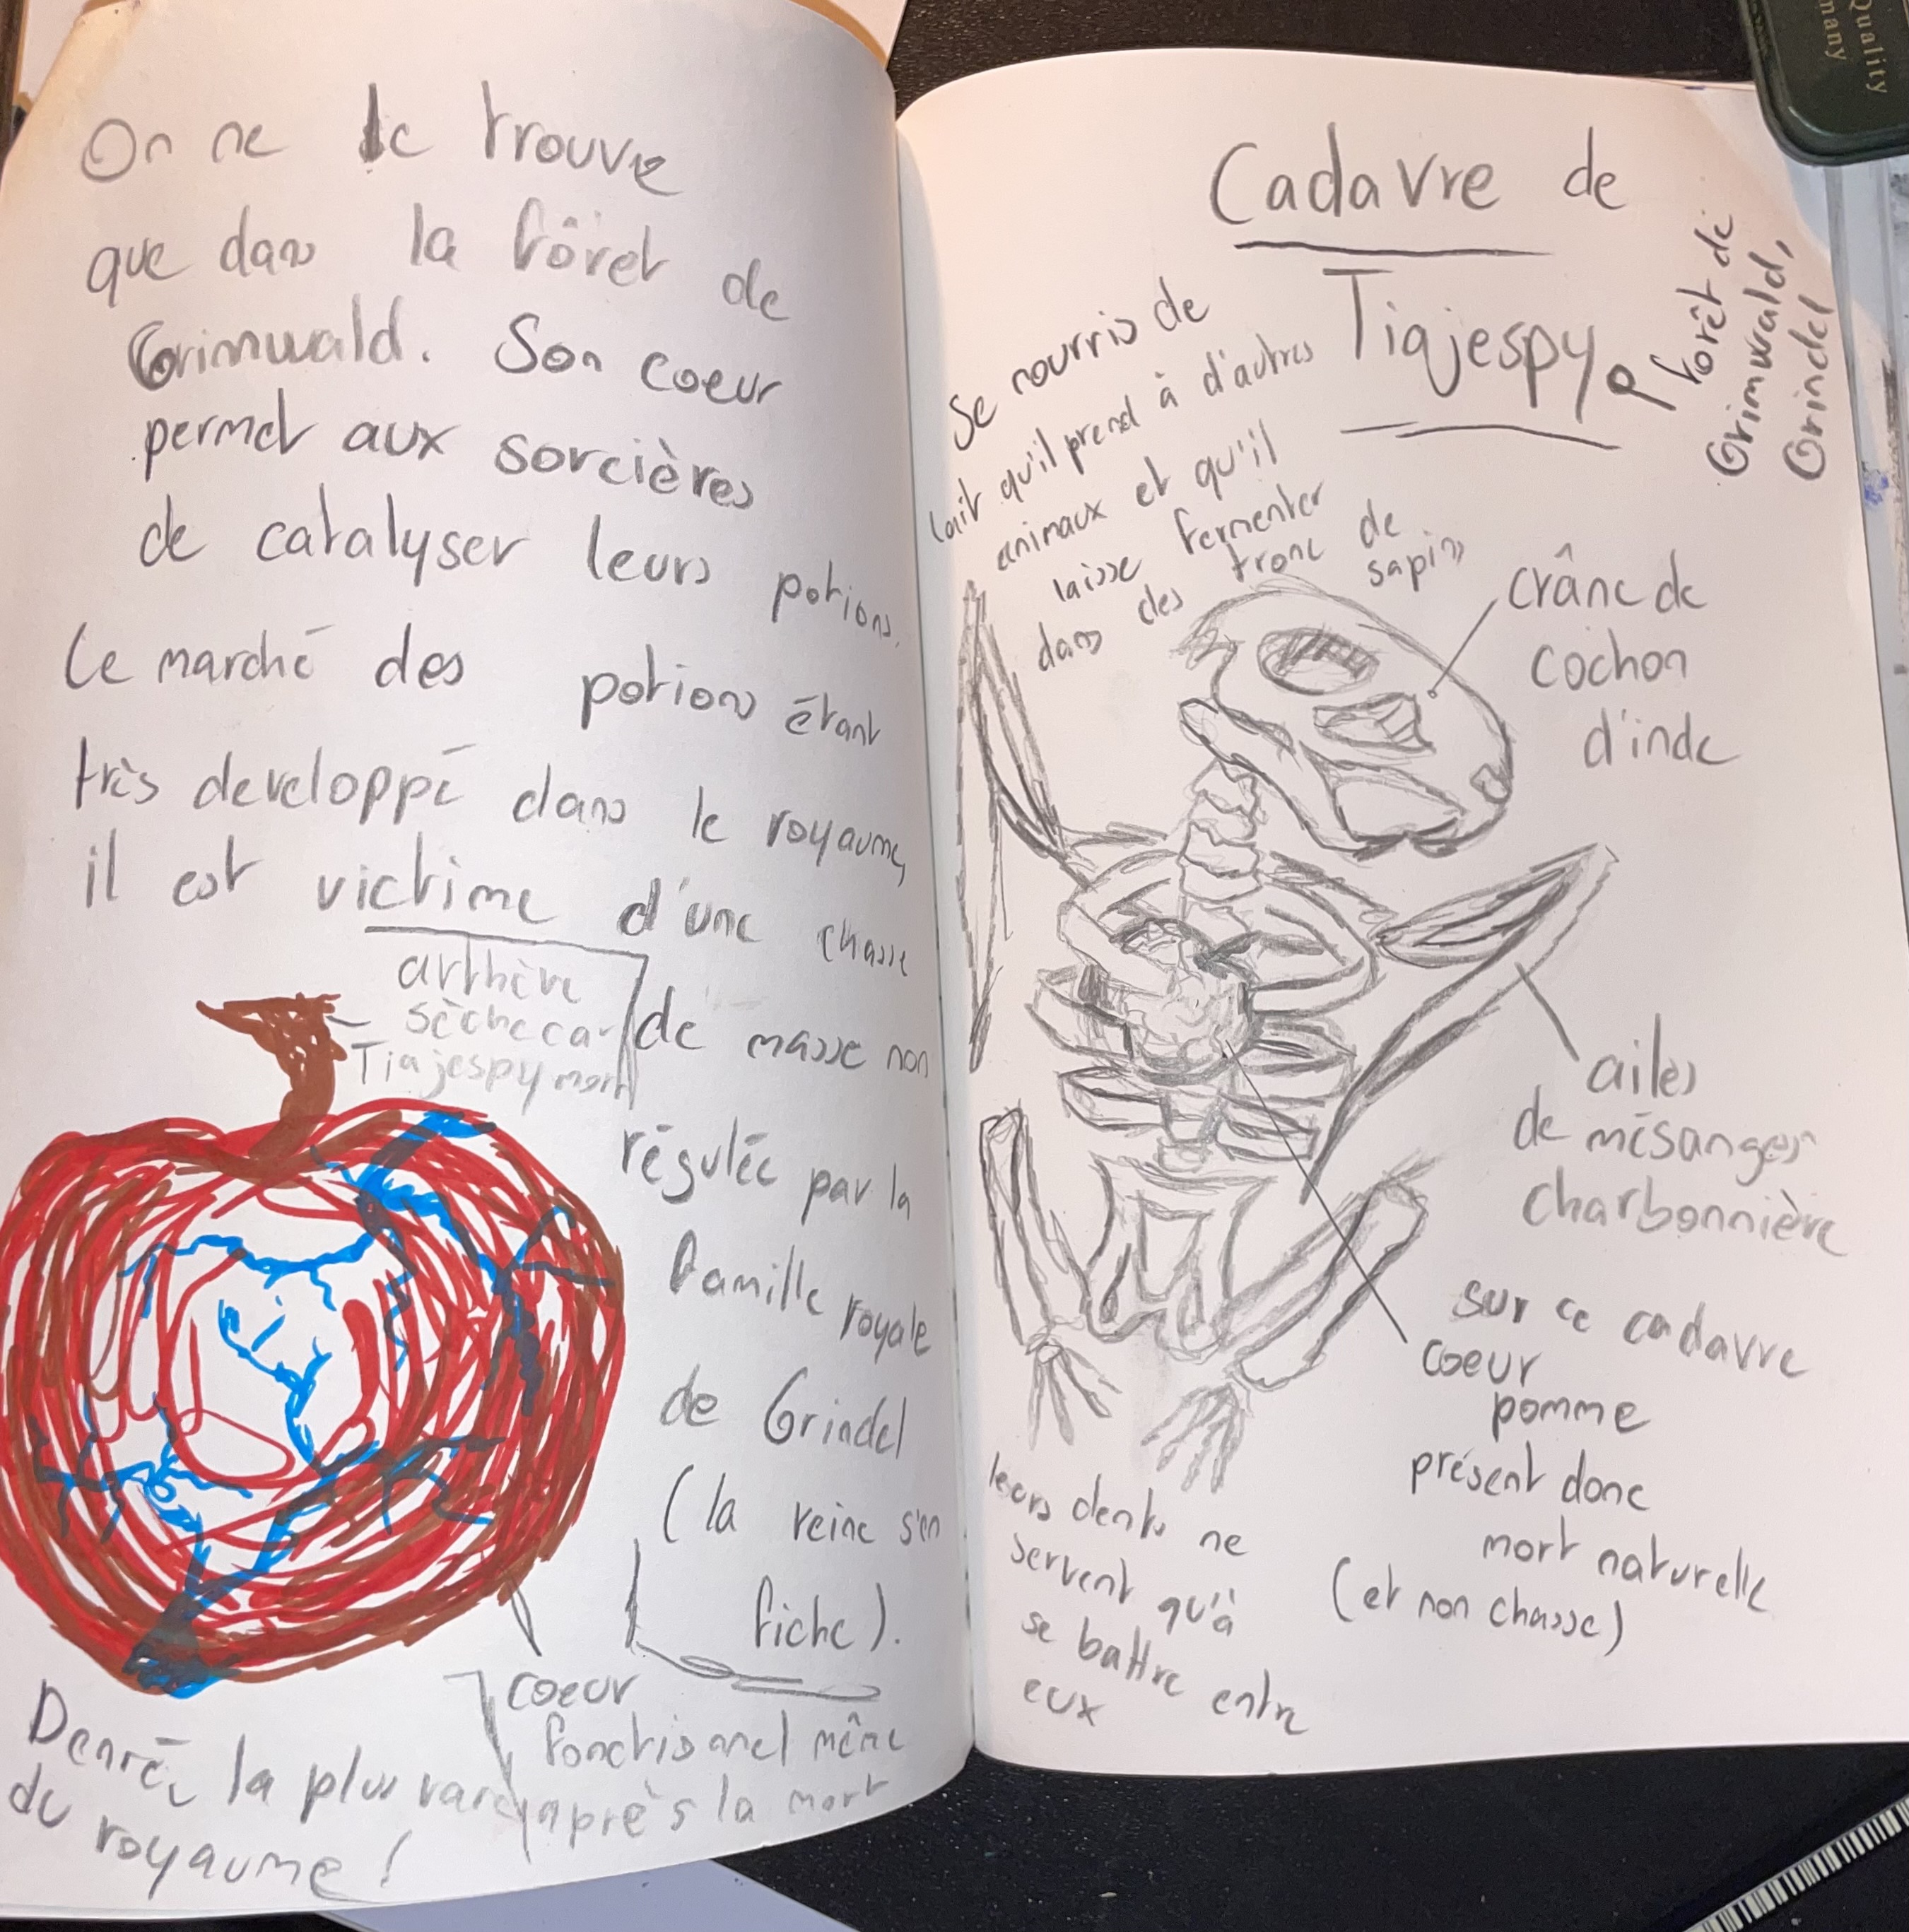 On ne le trouve
que dans la fôret de
Grimwald. Son coeur
permet aux sorcières
de catalyser leurs potions.
Le marché des potions étant
très developpé dans le royaume,
il est victime d'une chasse
de masse non
régulée par la
famille royale
de Grindel
(la reine s'en
fiche).
arthère
sèche car
Tiajespy mort
coeur
fonctionnel même
après la mort
Denrée la plus rare
du royaume !
Cadavre de
Tiajespy
forêt de
Grimwald,
Grindel
Se nourris de
lait qu'il prend à d'autres
animaux et qu'il
laisse fermenter
dans des tronc de
sapins
crâne de
cochon
d'inde
ailes
de mésanges
charbonnière
sur ce cadavre
coeur
pomme
présent donc
mort naturelle
(et non chasse)
leurs dents ne
servent qu'à
se battre entre
eux
Quality
many